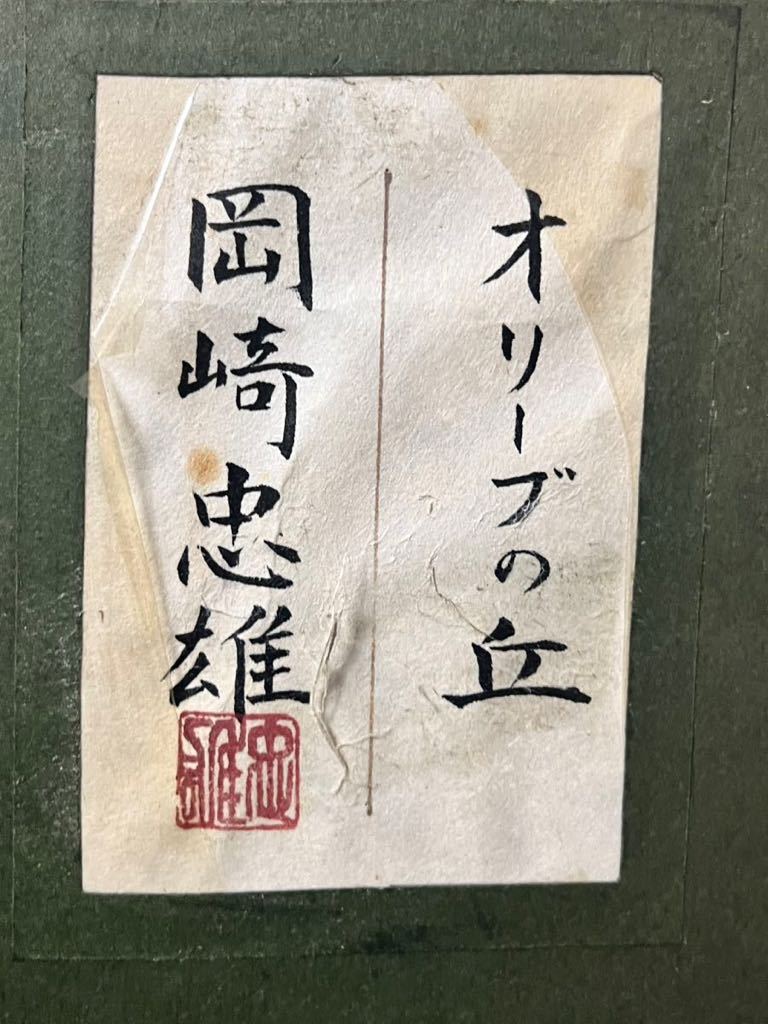 オリーブの丘
岡崎忠雄
忠雄